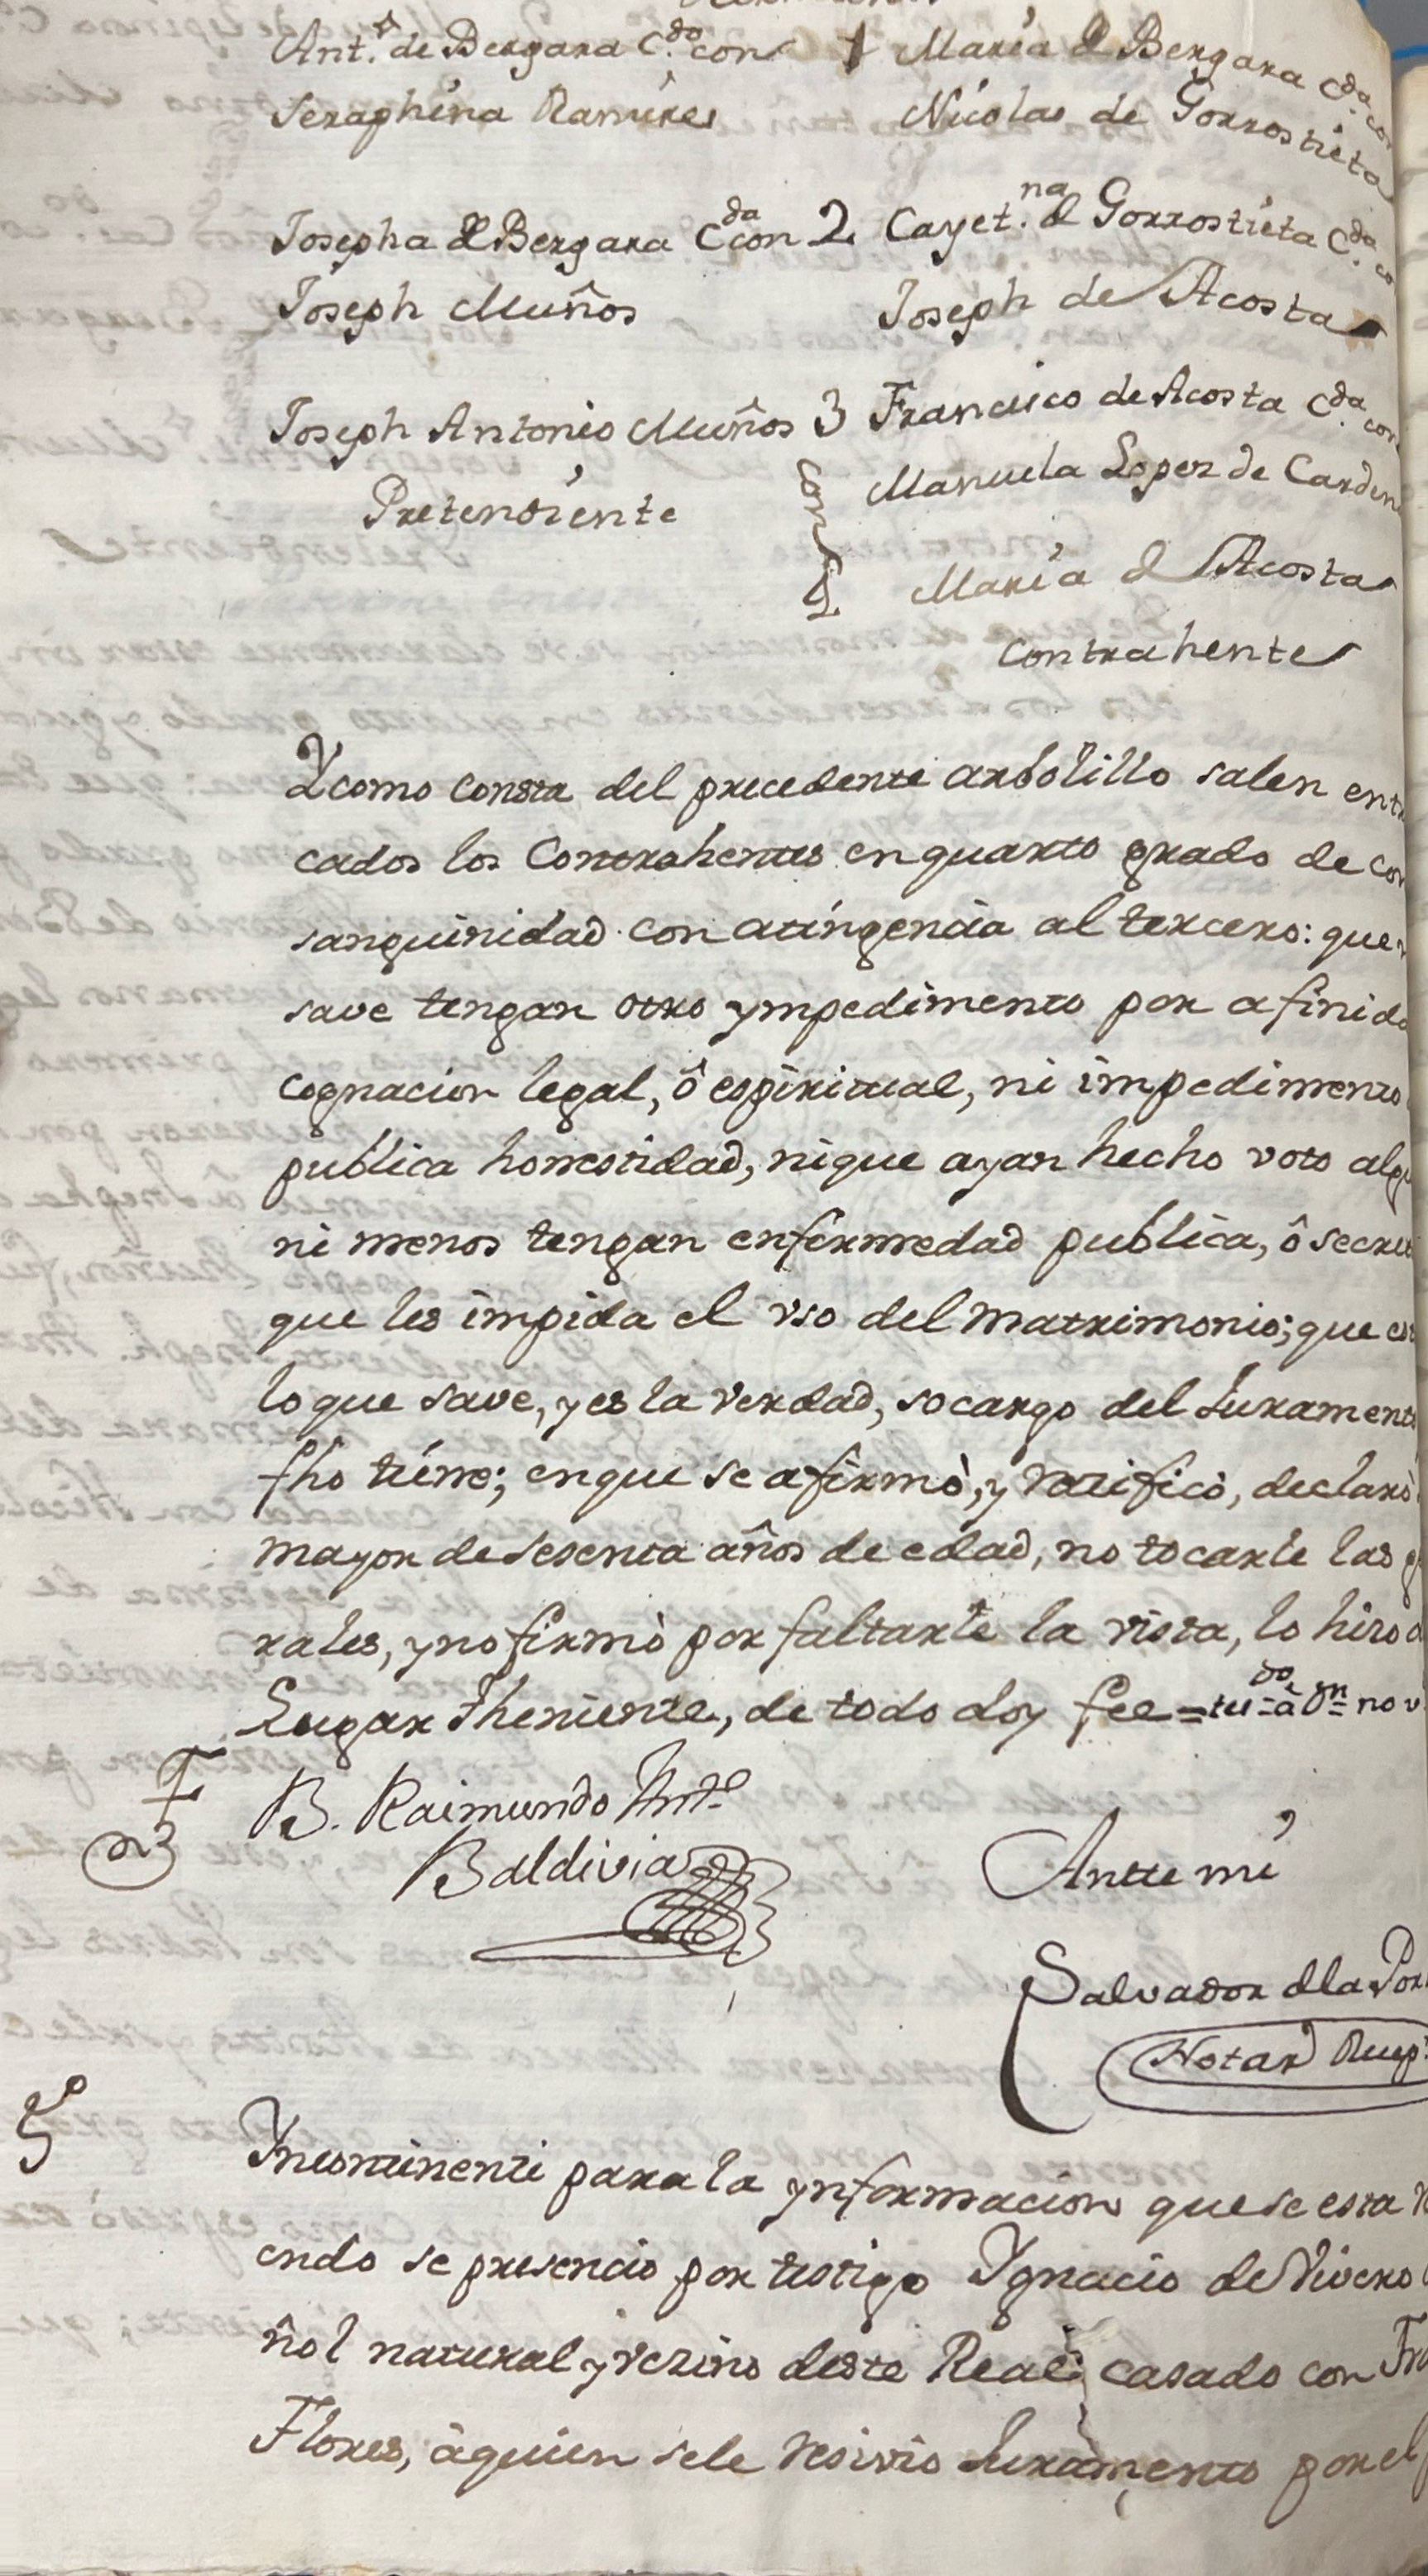 Ant.º de Bergara C.do con 1 Maria d Bergara Cda. con
Seraphina Ramires Nicolas de Gorrostieta
Josepha d Bergara Cda con 2 Cayet.na d Gorrostieta Cda. co
Joseph Muños Joseph de Acosta
Joseph Antonio Muños 3 Francisco de Acosta Cda. con
Pretendiente con Manuela Lopez de Carden
4 Maria d Acosta
Contrahente
Y como consta del precedente arbolillo salen ent
cados los Contrahentes en quarto grado de con
sanguinidad con atingencia al tercero: que
save tengan otro ympedimento por afinida
cognacion legal, ô espiritual, ni impedimento
publica honestidad, ni que ayan hecho voto alg
ni menos tengan enfermedad publica, ô secret
que les impida el vso del Matrimonio; que es
lo que save, y es la verdad, so cargo del Juramento
fho tiene; en que se afirmò, y ratificò, declarò
mayor de sesenta años de edad, no tocarle las g
rales, y no firmò por faltarle la vista, lo hizo
Lugar Theniente, de todo doy fee =
B. Raimundo Antº
Baldivia
Ante mi
Salvador dla Por
Notarº Recep.
5º
Yncontinenti para la ynformacion que se esta
endo se presencio por testigo Ygnacio de Rivero
ñol natural y vezino deste Real; casado con Fra
Flores, à quien se le resivio Juramento por el